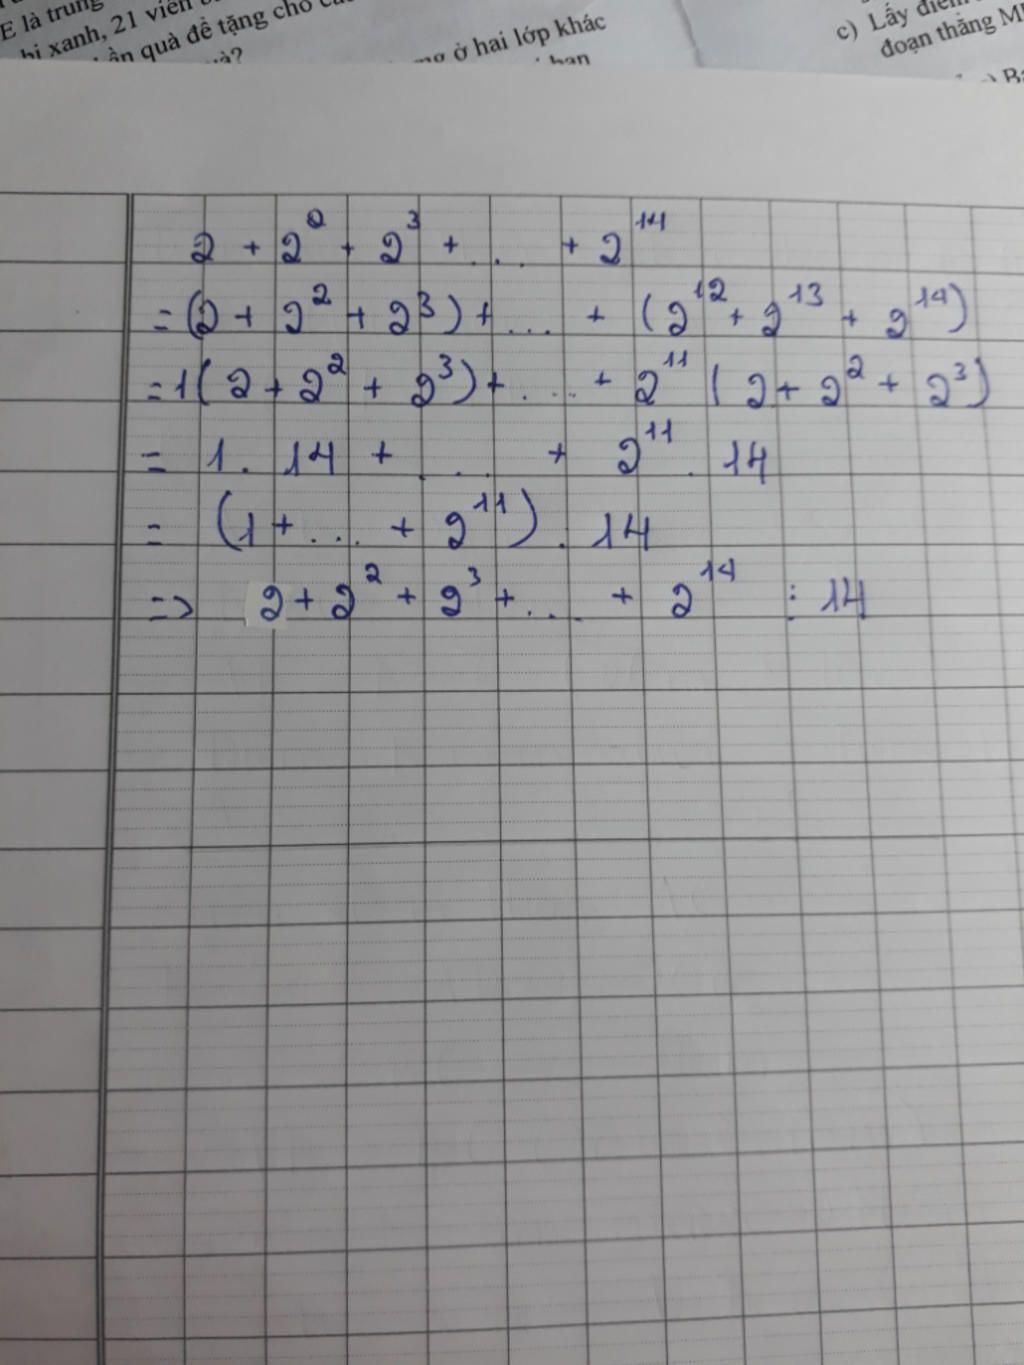 E là trung
bi xanh, 21 viên
ần quà để tặng cho
à?
ng ở hai lớp khác
bạn
c) Lấy điểm
đoạn thẳng M
2 + 2² + 2³ + ... + 2¹⁴
= (2 + 2² + 2³) + ... + (2¹² + 2¹³ + 2¹⁴)
= 1(2 + 2² + 2³) + ... + 2¹¹ (2 + 2² + 2³)
= 1. 14 + ... + 2¹¹. 14
= (1 + ... + 2¹¹). 14
=> 2 + 2² + 2³ + ... + 2¹⁴ ⋮ 14